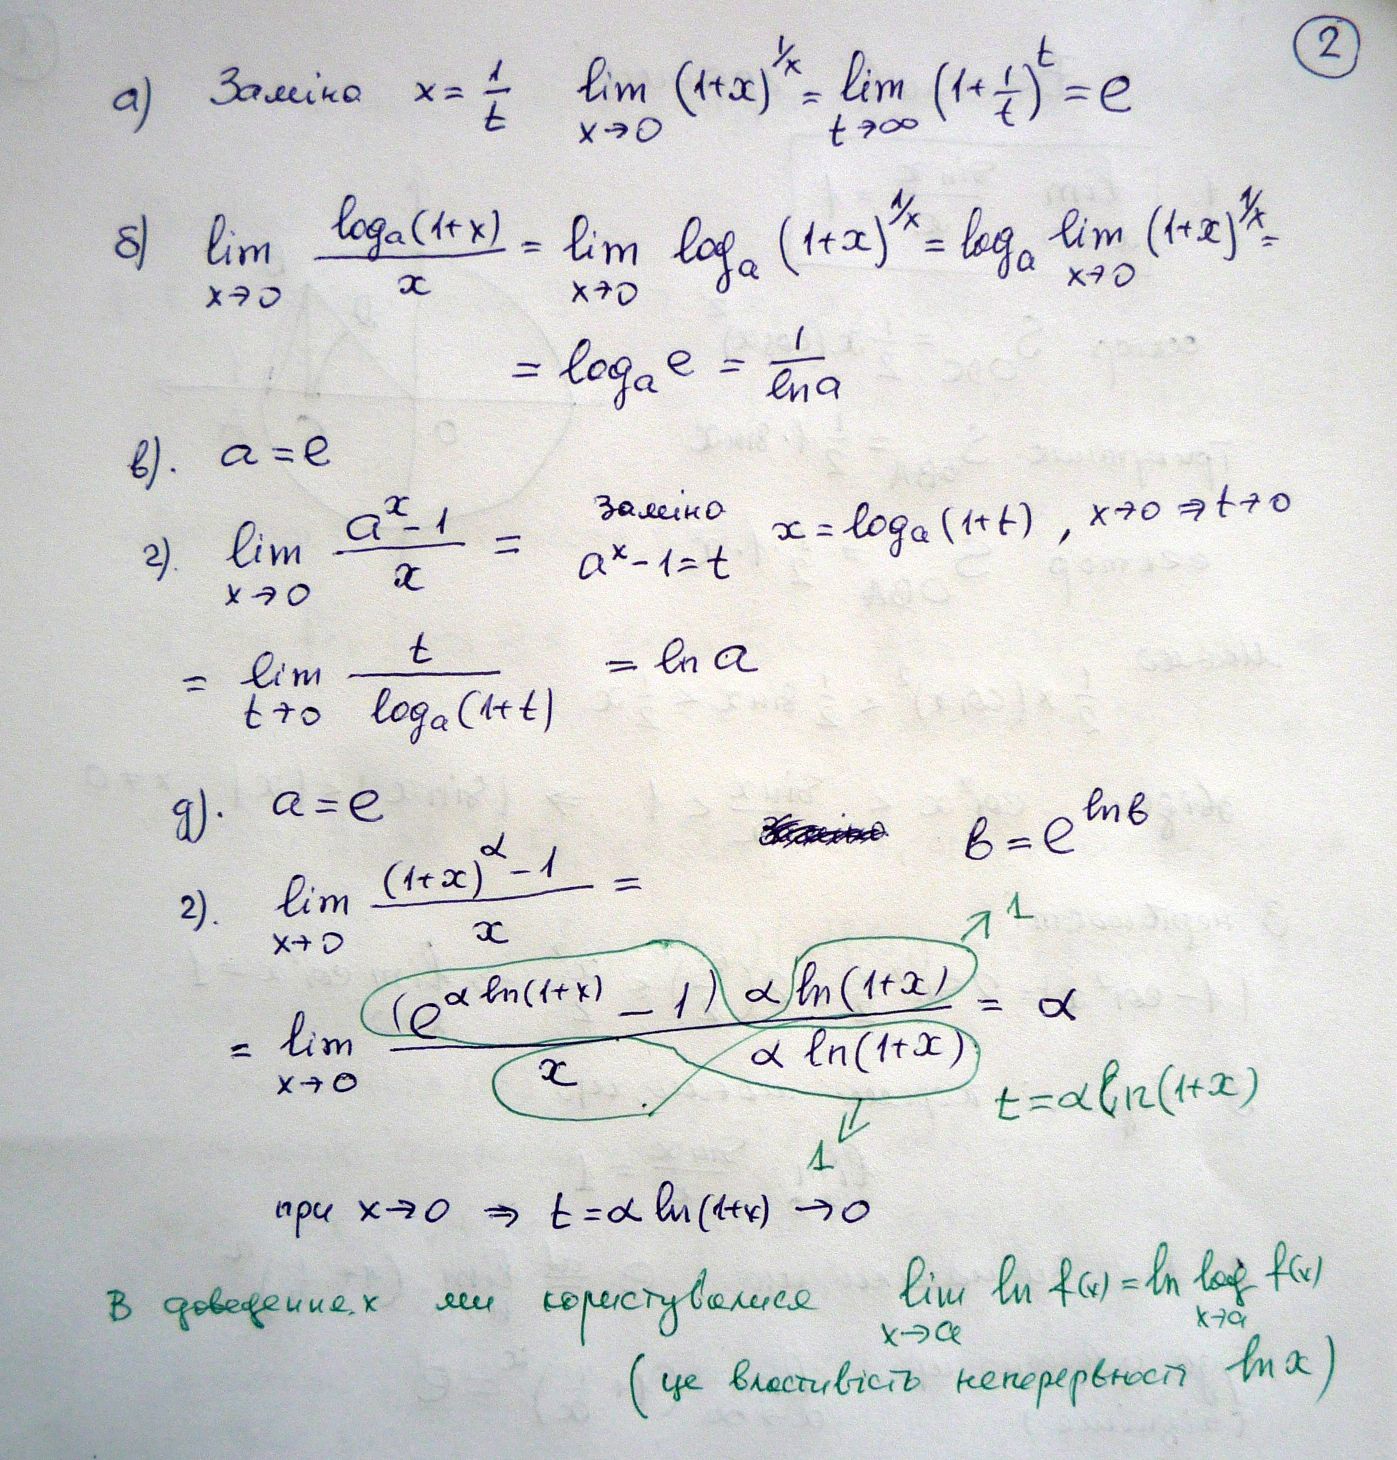 2
а) Заміна x = 1/t lim x→0 (1+x)^1/x = lim t→∞ (1+1/t)^t = e
б) lim x→0 log_a(1+x)/x = lim x→0 log_a (1+x)^1/x = log_a lim x→0 (1+x)^1/x =
= log_a e = 1/ln a
в). a = e
г). lim x→0 (a^x - 1)/x = заміна a^x - 1 = t x = log_a(1+t), x→0 ⇒ t→0
= lim t→0 t/log_a(1+t) = ln a
д). a = e
в = e^ln в
г). lim x→0 ((1+x)^α - 1)/x =
= lim x→0 (e^α ln(1+x) - 1) α ln(1+x) / x α ln(1+x) = α
1
1
t = α ln(1+x)
при x→0 ⇒ t = α ln(1+x) →0
В доведеннях ми користувалися lim x→a ln f(x) = ln log x→a f(x)
(це властивість неперервності ln x)